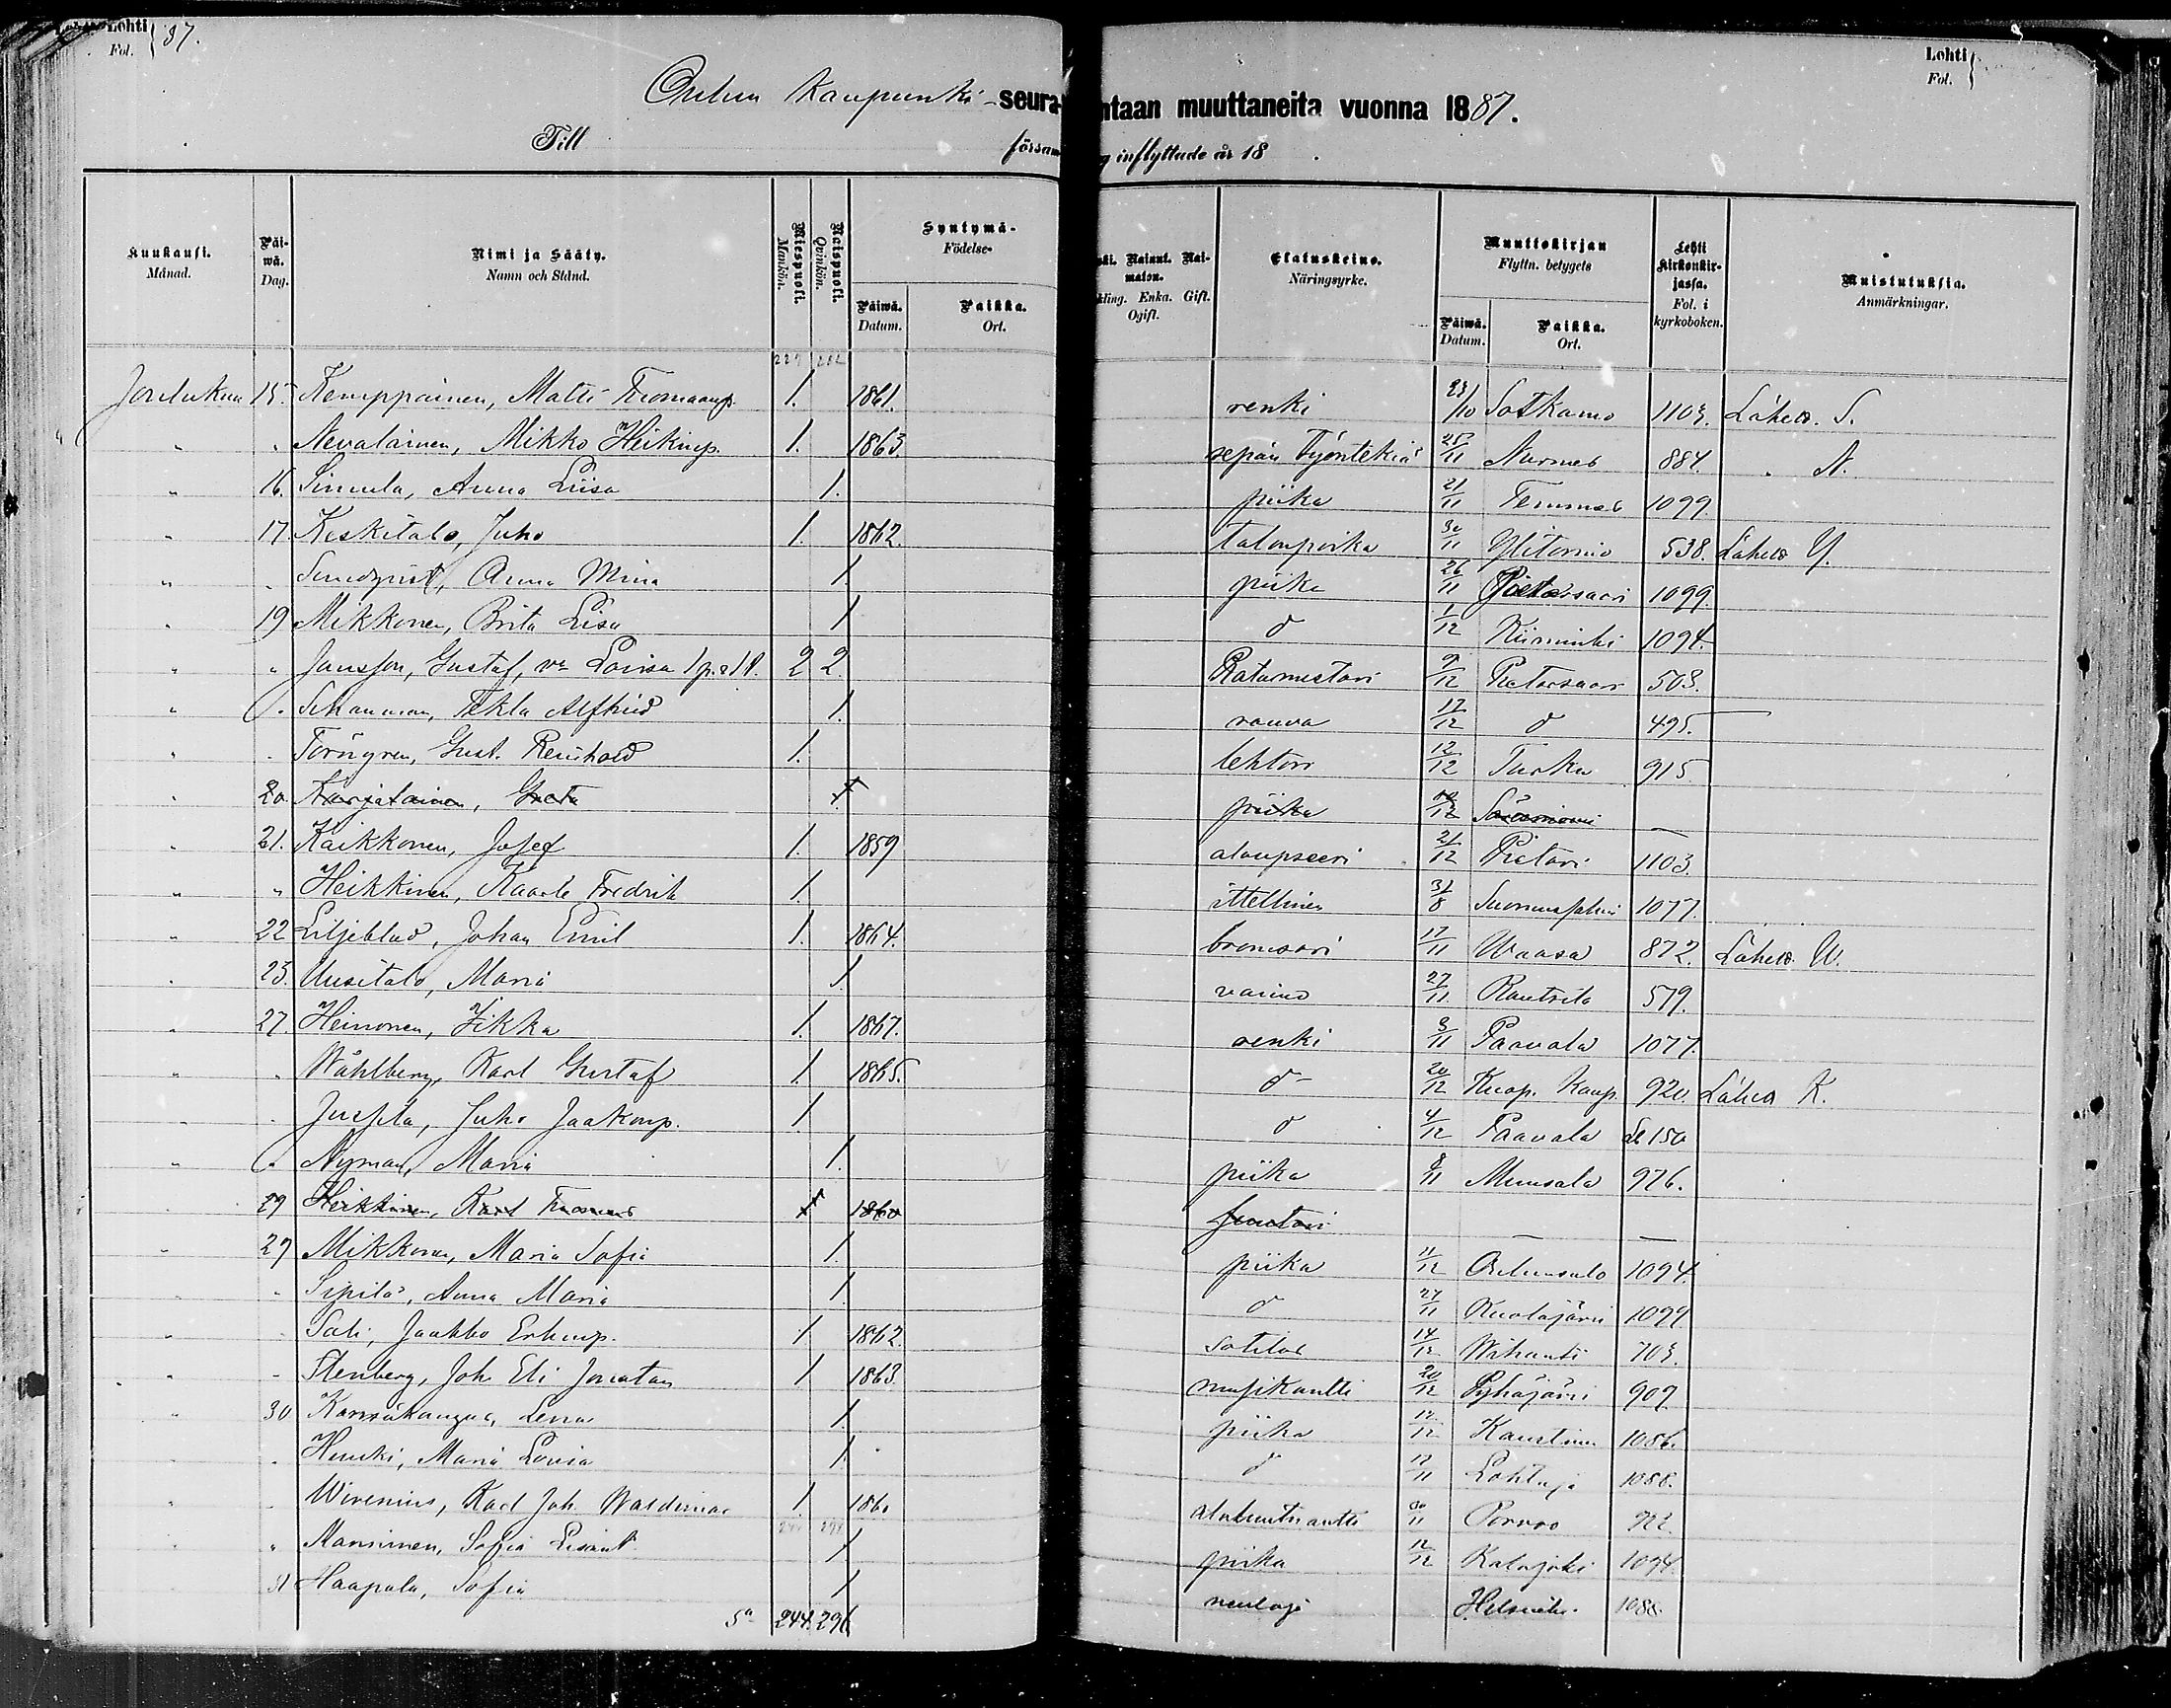 Lehti 87.
Fol.
Lehti
Fol.
Oulun Kaupunki -seura ntaan muuttaneita vuonna 1887.
Till försam g inflyttade år 18 .
Kuukausi. Månad. Päiwä. Dag. Nimi ja Sääty. Namn och Stånd. Miespuoli. Mankön. Naispuoli. Qvinkön. Syntymä- Födelse- Päiwä. Datum. Paikka. Ort. Nainut. Naimaton. Enka. Gift. Ogift. Elatuskeino. Näringsyrke. Muuttokirjan Flyttn. betygets Päiwä. Datum. Paikka. Ort. Lehti kirkonkirjassa. Fol. i kyrkoboken. Muistutuksia. Anmärkningar.
Joulukuu 15. Kemppainen, Matti Tuomaanp. 1. 1861. renki 28/10 Sotkamo 1103. Lähet. S.
" " Nevalainen, Mikko Heikinp. 1. 1863. sepän työntekiä 25/11 Nurmes 884. " N.
" 16. Simula, Anna Liisa 1. piika 21/11 Temmes 1099.
" 17. Keskitalo, Juho 1. 1862. talonpoika 30/11 Ylitornio 538. Lähet Y.
" " Sundqvist, Anna Mina 1. piika 26/11 Pietarsaari 1099.
" 19 Mikkonen, Brita Lisa 1 d 1/12 Kiiminki 1094.
" " Jansson, Gustaf, va Lovisa 1 p. 1 t. 2 2. Ratamestari 9/12 Pietarsaari 503.
" " Schauman, Tekla Alfhild 1. rouva 17/12 d 495.
" " Törngren, Gust. Reinhold 1. lehtori 12/12 Turku 915.
" 20. Karjalainen, Greta 1 piika Säräisniemi
" 21. Kaikkonen, Josef 1. 1859 aloupseeri 21/12 Pietari 1103.
" " Heikkinen, Kaarle Fredrik 1. ittellinen 31/8 Suomussalmi 1077.
" 22 Liljeblad, Johan Emil 1. 1864. 17/11 Waasa 872. Lähet. W.
" 23. Uusitalo, Maria 1. vaimo 27/11 Rantsila 579.
" 27. Heinonen, Fikka 1. 1867. renki 3/11 Paavola 1077.
" " Wåhlberg, Karl Gustaf 1. 1865. d 20/12 Kuop. Kaup. 920. Lähet K.
" " Juho Jaakonp. 1. d 4/12 Paavola 150
" " Nyman, Maria 1. piika 8/11 Munsala 976.
29 Heikkinen, Karl Tuomas 1 1860
" 29 Mikkonen, Maria Sofia 1. piika 11/12 Oulunsalo 1094.
" Sipilä, Anna Maria 1. d 27/11 Kuolajärvi 1099.
" Sali, Jaakko Erkinp. 1 1862. sotilas 14/12 Wihanti 703.
" " Stenberg, Joh. Eli Jonatan 1 1863. musikantti 20/12 Pyhäjärvi 907.
" 30 Kansakangas, Lena 1. piika 12/12 Kaustinen 1086.
" Maria Lovisa 1. d 17/11 Lohtaja 1088.
" Wirenius, Karl Joh. Waldemar 1. 1860 Porvoo 722.
" " Manninen, Sofia 1 piika 12/12 Kalajoki 1094.
31 Haapala, Sofia 1 neuloja Helsinki. 1088.
Sa 244. 296